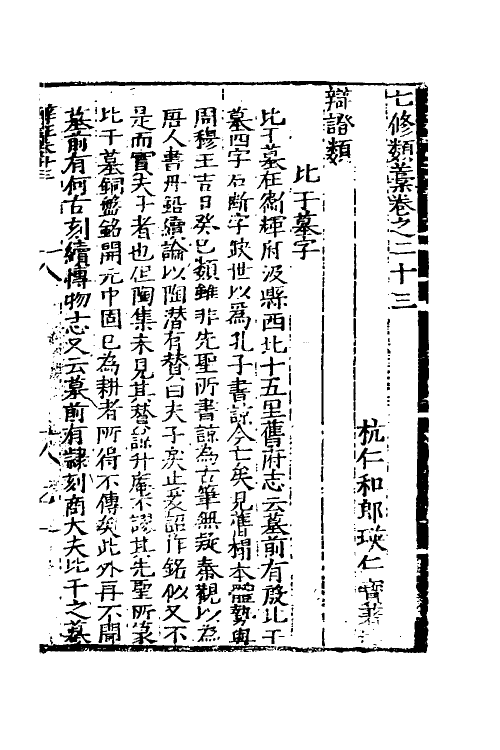 七修類藁卷之二十三
杭仁和郎瑛仁寶著
辯證類
比干墓字
比干墓在衛輝府汲縣西北十五里舊府志云墓前有殷比干
墓四字石斷字缺世以為孔子書諒今亡矣見舊榻本體勢與
周穆王吉日癸巳類雖非先聖所書諒為古筆無疑秦觀以為
唐人書丹鉛續論以陶潛有賛曰夫子矣止爰詔作銘似又不
是而實夫子者也但陶集未見其賛諒升庵不謬其先聖所篆
比干墓銅盤銘開元中固已為耕者所得不傳矣此外再不聞
墓前有何古刻續博物志又云墓前有隸刻商大夫比干之墓